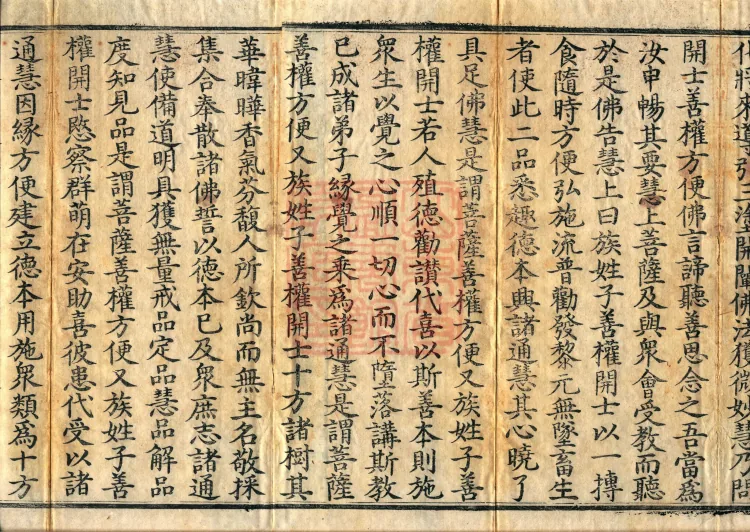 化將來道張上法開闡佛法獲微妙慧乃問
開士善權方便佛言諦聽善思念之吾當爲
汝申暢其要慧上菩薩及與衆會受教而聽
於是佛告慧上曰族姓子善權開士以一摶
食隨時方便弘施流普勸發黎元無墜畜生
者使此二品悉趣德本興諸通慧其心曉了
具足佛慧是謂菩薩善權方便又族姓子善
權開士若人殖德勸讃代喜以斯善本則施
衆生以覺之心順一切心而不墮落講斯教
已成諸弟子緣覺之乘爲諸通慧是謂菩薩
善權方便又族姓子善權開士十方諸樹其
華暐曄香氣芬馥人所欽尚而無主名敬採
集合奉散諸佛誓以德本已及衆庶志諸通
慧使備道明具獲無量戒品定品慧品解品
度知見品是謂菩薩善權方便又族姓子善
權開士愍察群萌在安助喜彼患代受以諸
通慧因緣方便建立德本用施衆類爲十方